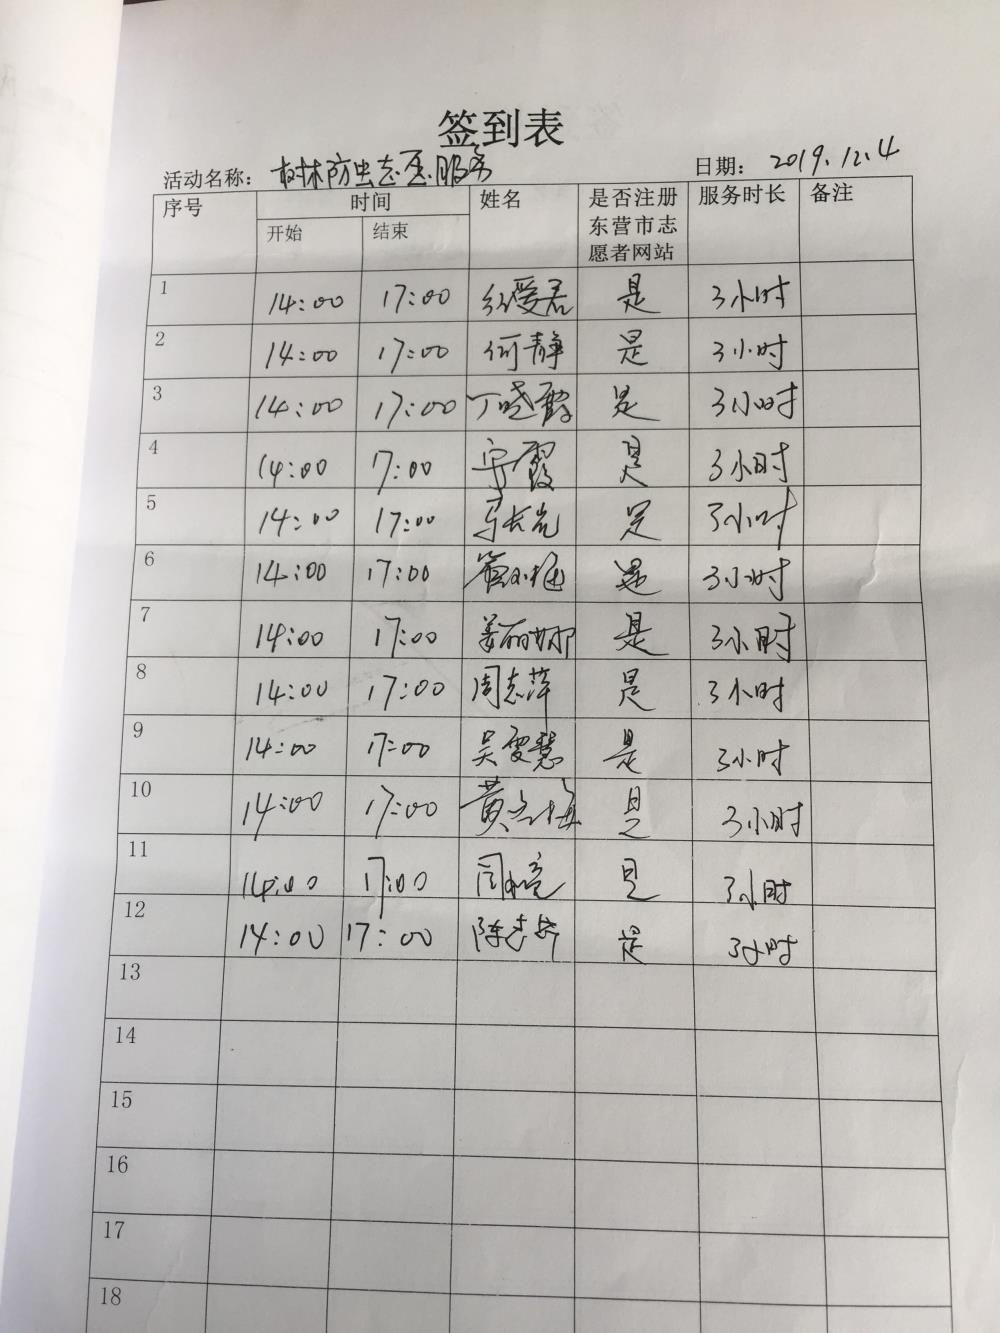 签到表
活动名称： 树林防虫志愿服务 日期： 2019.12.4
序号 时间 姓名 是否注册东营市志愿者网站 服务时长 备注
开始 结束
1 14:00 17:00 是 3小时
2 14:00 17:00 何静 是 3小时
3 14:00 17:00 丁晓霞 是 3小时
4 14:00 17:00 是 3小时
5 14:00 17:00 是 3小时
6 14:00 17:00 是 3小时
7 14:00 17:00 姜丽娜 是 3小时
8 14:00 17:00 周志萍 是 3小时
9 14:00 17:00 吴雯慧 是 3小时
10 14:00 17:00 是 3小时
11 14:00 17:00 是 3小时
12 14:00 17:00 是 3小时
13
14
15
16
17
18